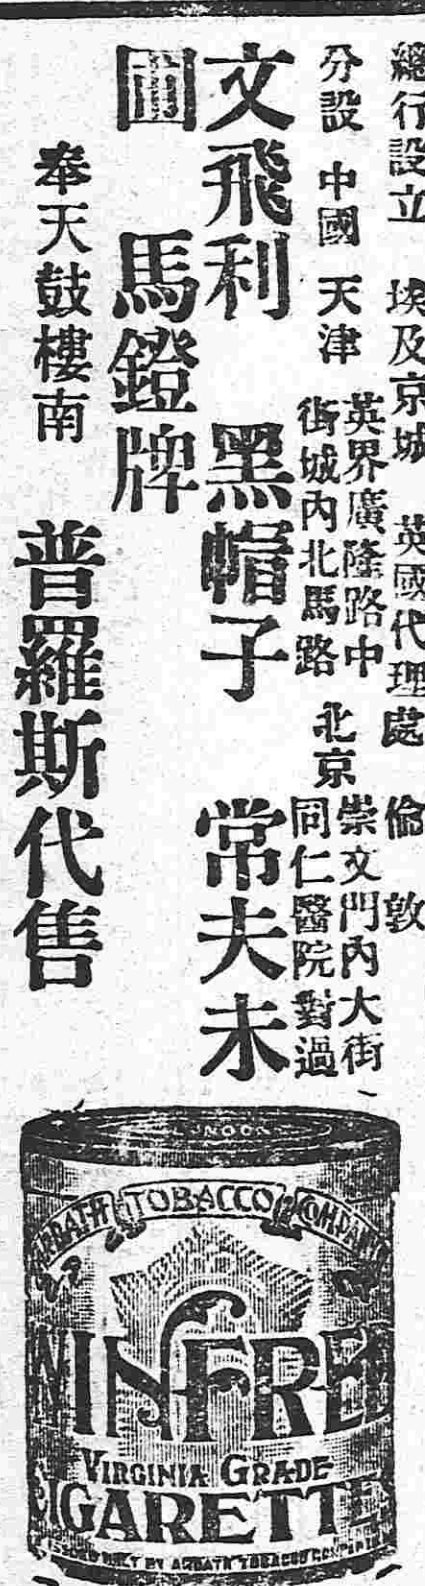 總行設立 埃及京城 英國代理處 倫敦
分設 中國 天津 英界廣隆路中
街城內北馬路 北京 崇文門內大街
同仁醫院對過
文飛利 黑帽子 常夫未
圖 馬鐙牌
奉天鼓樓南 普羅斯代售
LONDON
ARDATH TOBACCO COMPANY
WINFRED
VIRGINIA GRADE
CIGARETTES
BY ARDATH TOBACCO COMPANY